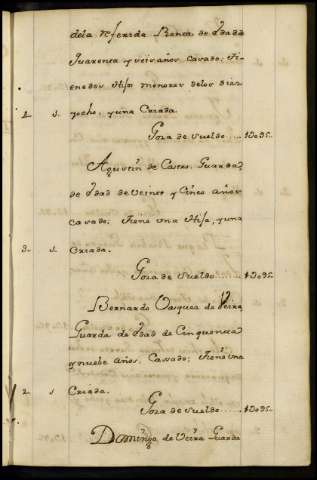 dela Referida Renta de Edad de
Quarenta y seis años Casado; tie
ne dos Hijos menores de los diez
4. s. y ocho, y una Criada.
Goza de Sueldo
Agustin de Castro Guarda
de Edad de Veinte y Cinco años
Casado; tiene una Hija, y una
3. s. Criada.
Goza de Sueldo
Bernardo Vasques de Neira
Guarda de Edad de Cinquenta
y nuebe años. Casado; tiene una
2. s. Criada.
Goza de Sueldo
Domingo de Neira Guarda